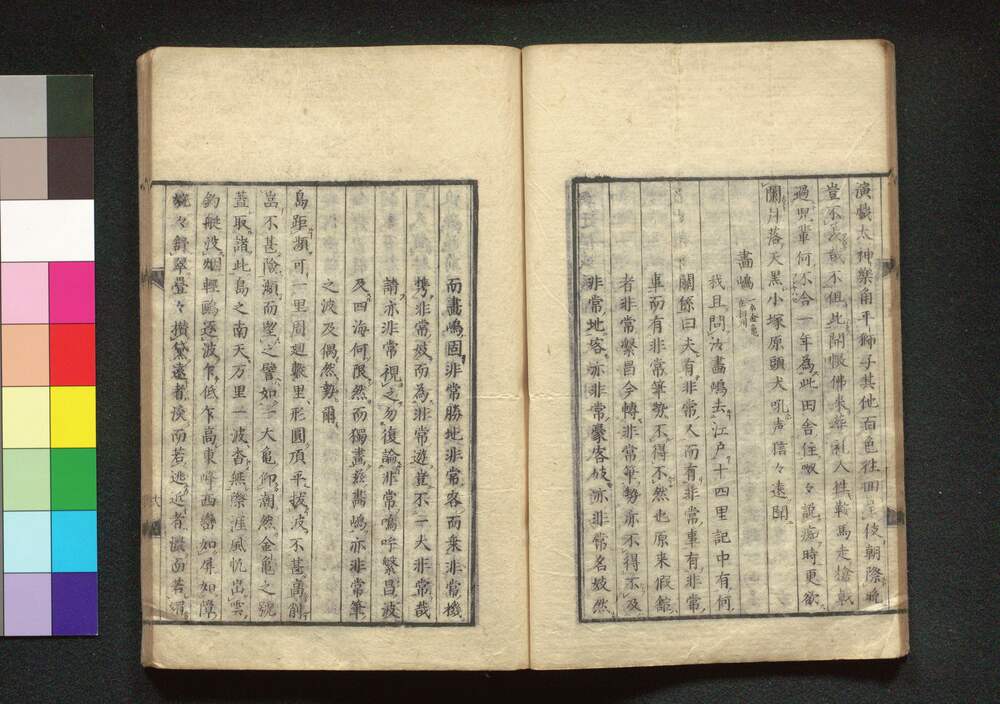 演戲太神樂角平獅子其他百色往田舎伎朝際晩
豈不	哉不但此開帳佛来葬礼人牲斬馬走搶戟
過児輩何不合一年為此田舎住歎々誰痴時更欲
闌月落天黒小塚原頭犬吼声信々遠聞
畵嶋
我且問汝畵嶋去江戸十四里記中有何
關係曰夫有非常人而有非常事有非常
事而有非常筆勢不得不然也原来假館
者非常繁昌今轉非常筆勢亦不得不及
非常地客亦非常豪客妓亦非常名妓然
而畵嶋固非常勝地非常客而乗非常機
携非常妓而為非常遊豈不一大非常哉
請亦非常視之勿復論非常嗚呼繁昌波
及四海何限然而獨畵茲畵嶋亦非常筆
之波及偶然勢爾
島距瀬可一里周廻數里形圓頂平拔波不甚高削
岩不甚險瀬而望之譬如一大亀仰潮然金亀之號
蓋取諸此島之南天万里一波杳無際涯風帆出雲
釣艇没烟輕鷗逐波乍低乍高東峰西巒如屏如障
繞々舒翠疊々攅黛遠者淡而若逃近者濃而若